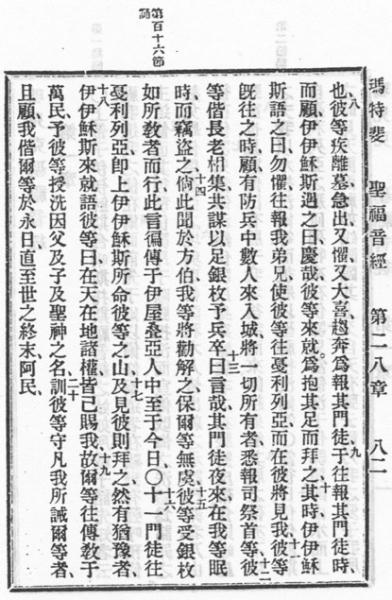 瑪特斐 聖福音經 第二八章 八二
第百十六節
誦
也、八彼等疾離墓、急出又懼又大喜、趨奔爲報其門徒、九于往報其門徒時、
而顧伊伊穌斯遇之曰、慶哉、彼等來就、爲抱其足而拜之、十其時伊伊穌
斯語之曰、勿懼、往報我弟兄、使彼等往戛利列亞、而在彼將見我、十一彼等
旣往之時、顧有防兵中數人來入城、將一切所有者、悉報司祭首等、十二彼
等偕長老相集、共謀以足銀枚予兵卒、十三曰、言哉、其門徒夜來、在我等眠
時、而竊盜之、十四倘此聞於方伯、我等將勸解之、保爾等無虞、十五彼等受銀枚、
如所教者而行、此言徧傳于伊屋叠亞人中、至于今日、〇十六十一門徒往
戛利列亞、卽上伊伊穌斯所命彼等之山、十七及見彼則拜之、然有猶豫者、
十八伊伊穌斯來就語彼等曰、在天在地諸權、皆已賜我、十九故爾等往傳教于
萬民、予彼等授洗、因父及子及聖神之名、二十訓彼等守凡我所誡爾等者、
且顧、我偕爾等於永日、直至世之終末、阿民、